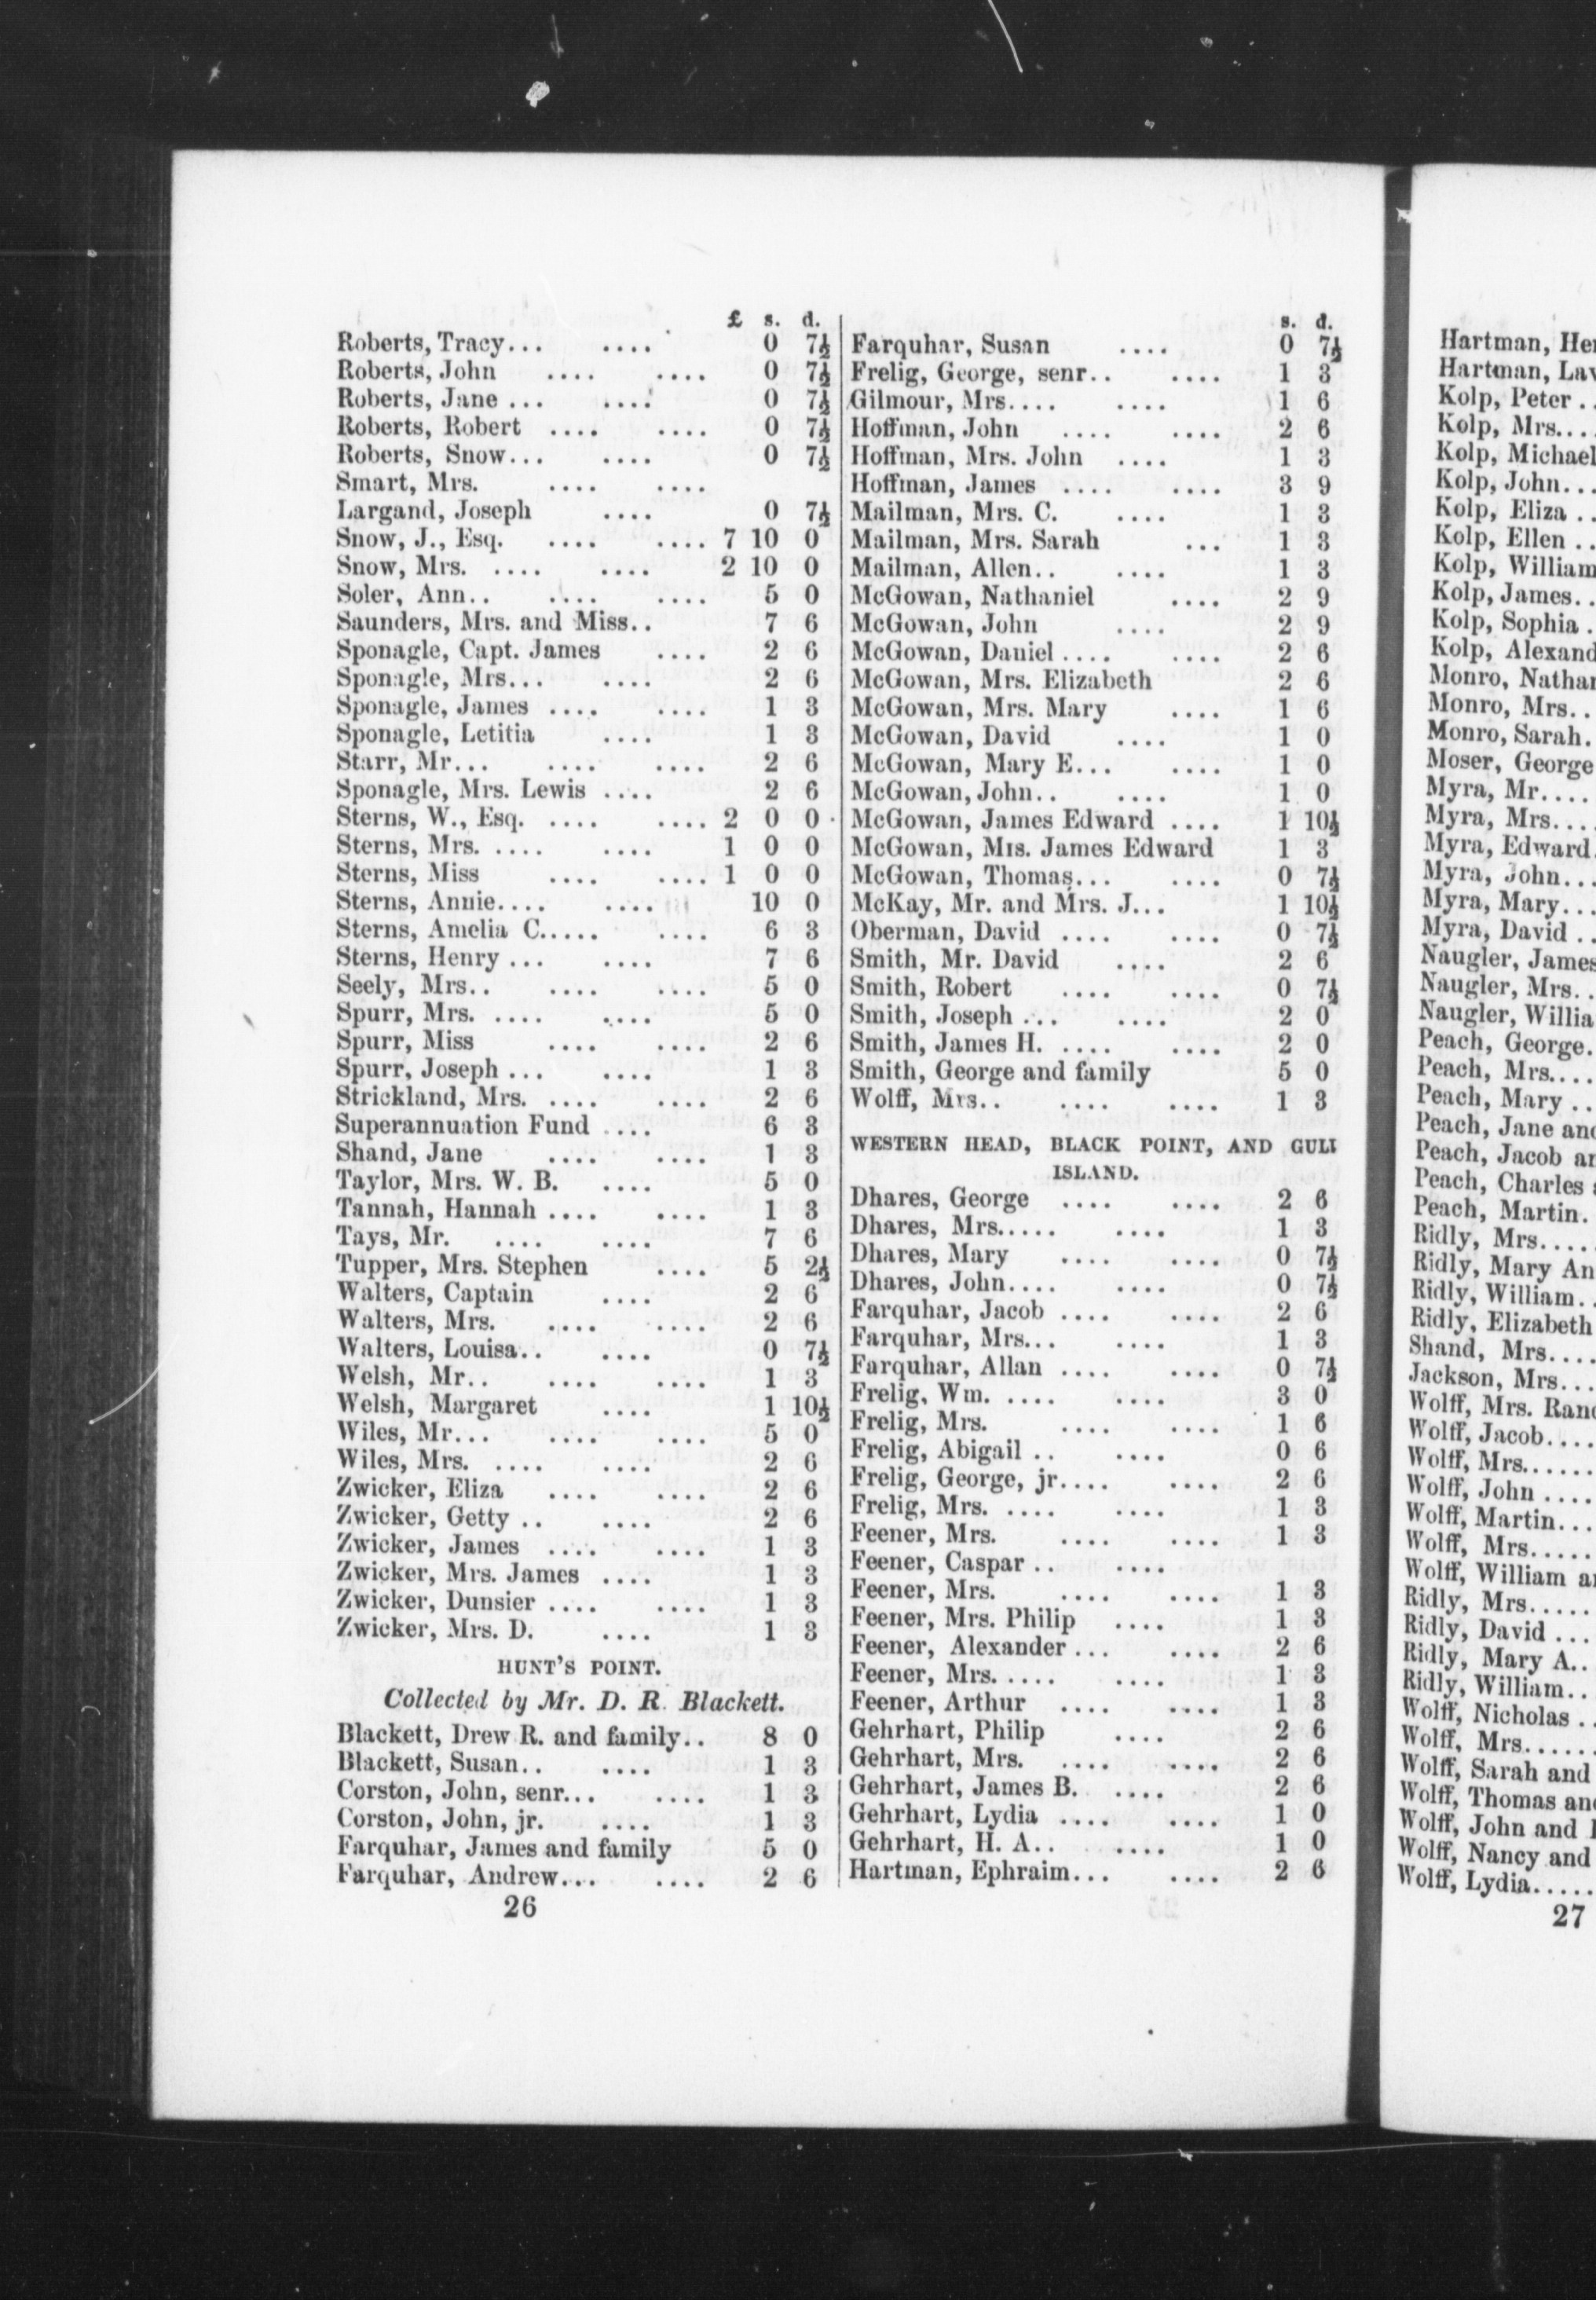 £ s. d.
Roberts, Tracy... .... 0 7½
Roberts, John .... .... 0 7½
Roberts, Jane ... .... 0 7½
Roberts, Robert .... .... 0 7½
Roberts, Snow... .... 0 7½
Smart, Mrs. .... ....
Largand, Joseph .... 0 7½
Snow, J., Esq. .... .... 7 10 0
Snow, Mrs. .... .... 2 10 0
Soler, Ann.. .... .... 5 0
Saunders, Mrs. and Miss.. 7 6
Sponagle, Capt. James .... 2 6
Sponagle, Mrs... .... 2 6
Sponagle, James .... .... 1 3
Sponagle, Letitia .... 1 3
Starr, Mr... .... .... 2 6
Sponagle, Mrs. Lewis .... 2 6
Sterns, W., Esq. .... .... 2 0 0
Sterns, Mrs. .... .... 1 0 0
Sterns, Miss .... .... 1 0 0
Sterns, Annie.... .... 10 0
Sterns, Amelia C..... .... 6 3
Sterns, Henry ... .... 7 6
Seely, Mrs.. .... .... 5 0
Spurr, Mrs. .... .... 5 0
Spurr, Miss .... .... 2 6
Spurr, Joseph ... .... 1 3
Strickland, Mrs. .... .... 2 6
Superannuation Fund .... 6 3
Shand, Jane .... .... 1 3
Taylor, Mrs. W. B. .... 5 0
Tannah, Hannah .... .... 1 3
Tays, Mr. .... .... 7 6
Tupper, Mrs. Stephen .... 5 2½
Walters, Captain .... 2 6
Walters, Mrs. .... .... 2 6
Walters, Louisa.. .... 0 7½
Welsh, Mr.. .... .... 1 3
Welsh, Margaret .... 1 10½
Wiles, Mr... .... .... 5 0
Wiles, Mrs. .... .... 2 6
Zwicker, Eliza .... .... 2 6
Zwicker, Getty .. .... 2 6
Zwicker, James .... .... 1 3
Zwicker, Mrs. James .... 1 3
Zwicker, Dunsier .... .... 1 3
Zwicker, Mrs. D. .... 1 3
HUNT'S POINT.
Collected by Mr. D. R. Blackett.
Blackett, Drew R. and family.. 8 0
Blackett, Susan.. .... 1 3
Corston, John, senr... .... 1 3
Corston, John, jr. .... 1 3
Farquhar, James and family 5 0
Farquhar, Andrew... .... 2 6
26
s. d.
Farquhar, Susan .... 0 7½
Frelig, George, senr.. .... 1 3
Gilmour, Mrs.... .... 1 6
Hoffman, John .... .... 2 6
Hoffman, Mrs. John .... 1 3
Hoffman, James .... .... 3 9
Mailman, Mrs. C. .... 1 3
Mailman, Mrs. Sarah ... 1 3
Mailman, Allen.. .... 1 3
McGowan, Nathaniel .... 2 9
McGowan, John .... 2 9
McGowan, Daniel .... .... 2 6
McGowan, Mrs. Elizabeth 2 6
McGowan, Mrs. Mary .... 1 6
McGowan, David .... 1 0
McGowan, Mary E... .... 1 0
McGowan, John.. .... 1 0
McGowan, James Edward .... 1 10½
McGowan, Mrs. James Edward 1 3
McGowan, Thomas... .... 0 7½
McKay, Mr. and Mrs. J... 1 10½
Oberman, David .... .... 0 7½
Smith, Mr. David .... 2 6
Smith, Robert .... .... 0 7½
Smith, Joseph ... .... 2 0
Smith, James H. .... .... 2 0
Smith, George and family 5 0
Wolff, Mrs.. .... .... 1 3
WESTERN HEAD, BLACK POINT, AND GULL
ISLAND.
Dhares, George .... .... 2 6
Dhares, Mrs..... .... 1 3
Dhares, Mary .... .... 0 7½
Dhares, John.... .... 0 7½
Farquhar, Jacob .... .... 2 6
Farquhar, Mrs... .... 1 3
Farquhar, Allan .... .... 0 7½
Frelig, Wm. .... .... 3 0
Frelig, Mrs. .... .... 1 6
Frelig, Abigail .. .... 0 6
Frelig, George, jr.... .... 2 6
Frelig, Mrs. .... .... 1 3
Feener, Mrs. .... .... 1 3
Feener, Caspar .. ....
Feener, Mrs. .... .... 1 3
Feener, Mrs. Philip .... 1 3
Feener, Alexander ... .... 2 6
Feener, Mrs. .... .... 1 3
Feener, Arthur .... .... 1 3
Gehrhart, Philip .... 2 6
Gehrhart, Mrs. .... .... 2 6
Gehrhart, James B. .... 2 6
Gehrhart, Lydia .... .... 1 0
Gehrhart, H. A.. .... 1 0
Hartman, Ephraim... .... 2 6
Hartman,
Hartman,
Kolp, Peter ..
Kolp, Mrs....
Kolp, Michael
Kolp, John...
Kolp, Eliza ..
Kolp, Ellen ..
Kolp, William
Kolp, James..
Kolp, Sophia .
Kolp,
Monro,
Monro, Mrs..
Monro, Sarah.
Moser, George
Myra, Mr....
Myra, Mrs...
Myra, Edward.
Myra, John...
Myra, Mary...
Myra, David ..
Naugler, James
Naugler, Mrs..
Naugler,
Peach, George.
Peach, Mrs....
Peach, Mary ..
Peach, Jane and
Peach, Jacob
Peach, Charles
Peach, Martin.
Ridly, Mrs....
Ridly, Mary
Ridly, William..
Ridly, Elizabeth
Shand, Mrs....
Jackson, Mrs...
Wolff, Mrs.
Wolff, Jacob....
Wolff, Mrs......
Wolff, John ....
Wolff, Martin...
Wolff, Mrs.....
Wolff, William
Ridly, Mrs.....
Ridly, David ...
Ridly, Mary A..
Ridly, William..
Wolff, Nicholas ..
Wolff, Mrs......
Wolff, Sarah and
Wolff, Thomas and
Wolff, John and
Wolff, Nancy and
Wolff, Lydia.....
27